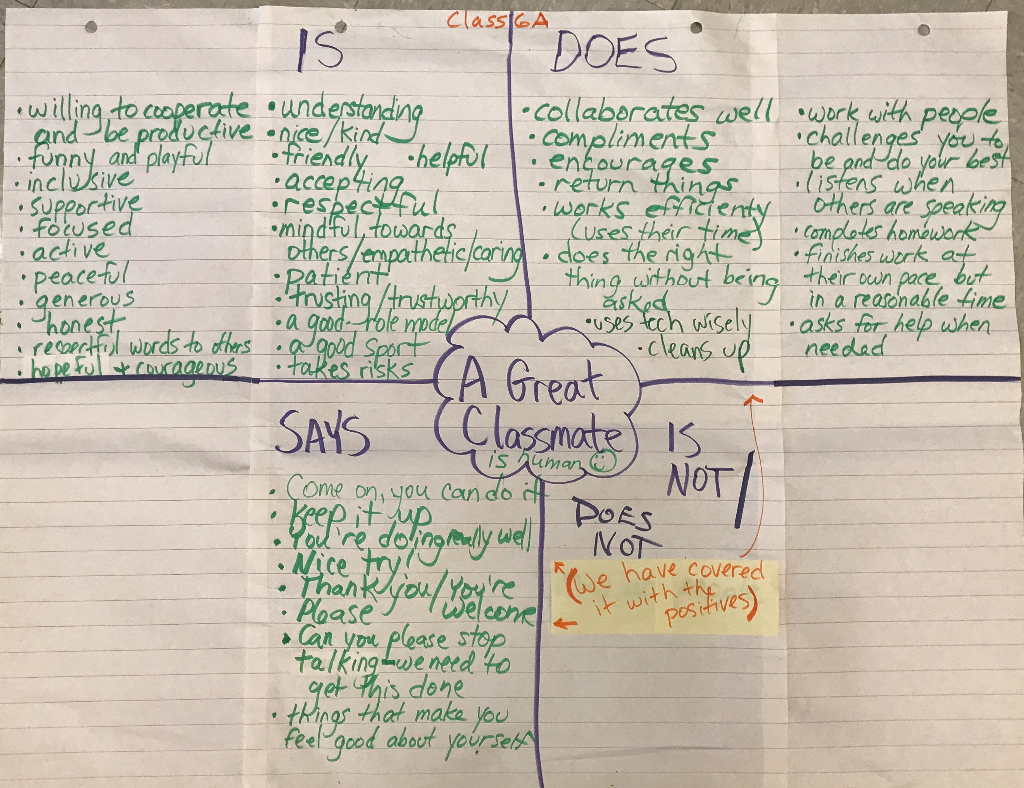 Class 6A
IS
• willing to cooperate
and be productive
• funny and playful
• inclusive
• supportive
• focused
• active
• peaceful
• generous
• honest
• respectful words to others
• hopeful + courageous
• understanding
• nice/kind
• friendly • helpful
• accepting
• respectful
• mindful towards
others/empathetic/caring
• patient
• trusting/trustworthy
• a good role model
• a good sport
• takes risks
DOES
• collaborates well
• compliments
• encourages
• return things
• works efficienty
(uses their time)
• does the right
thing without being
asked
• uses tech wisely
• cleans up
• work with people
• challenges you to
be and do your best
• listens when
others are speaking
• completes homework
• finishes work at
their own pace but
in a reasonable time
• asks for help when
needed
A Great
Classmate
is human ☺
SAYS
• Come on, you can do it
• keep it up
• You're doing really well
• Nice try!
• Thank you/You're
welcome
• Please
• Can you please stop
talking-we need to
get this done
• things that make you
feel good about yourself
IS
NOT/
DOES
NOT
(we have covered
it with the
positives)